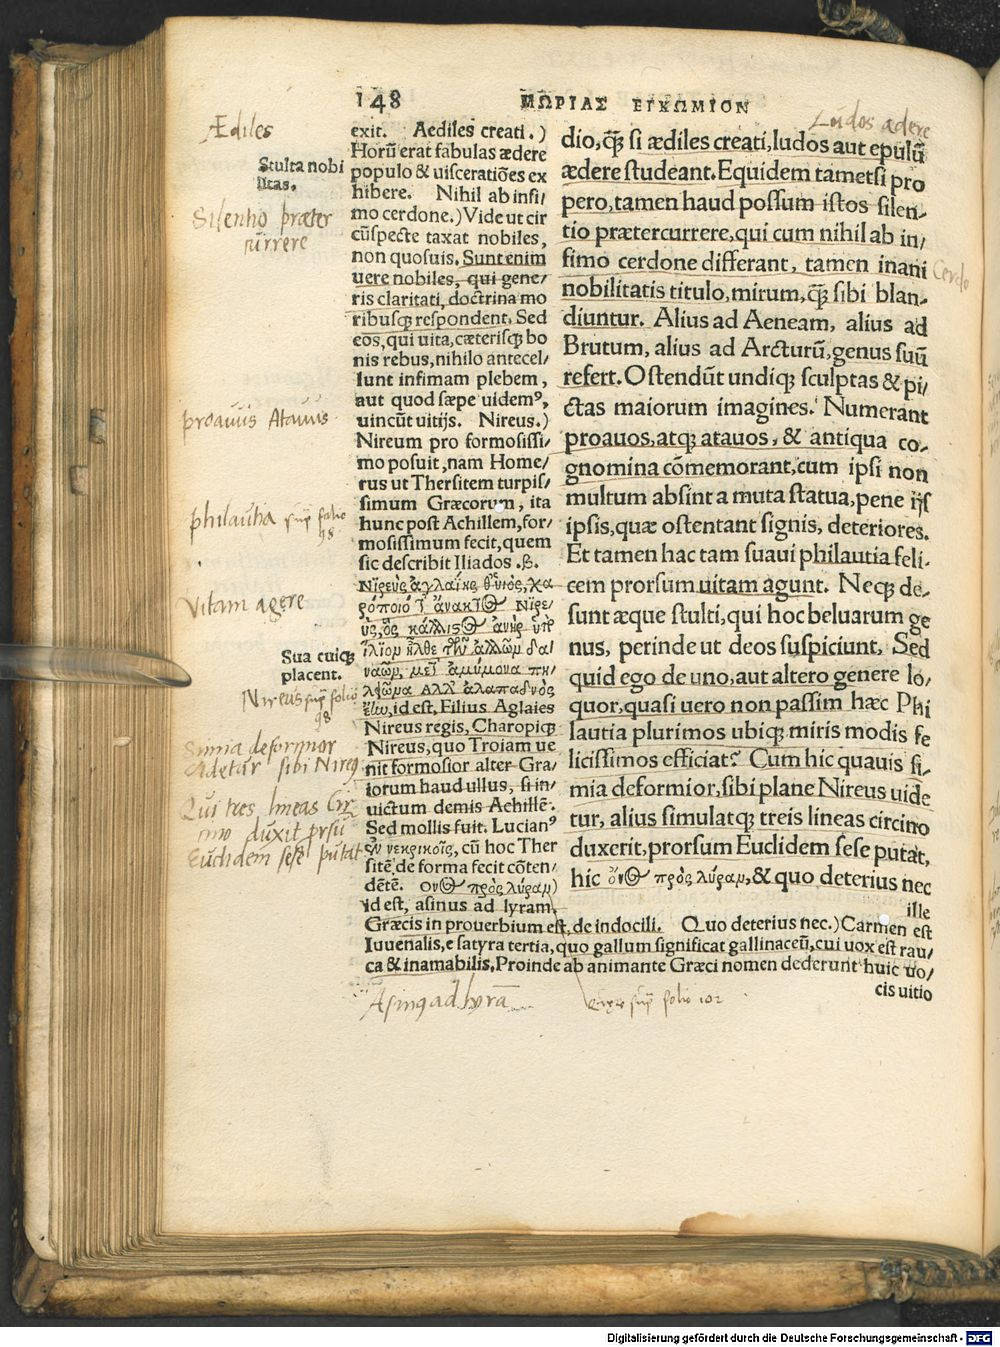 148 ΜΩΡΙΑΣ ΕΓΚΩΜΙΟΝ
Ludos adere
Ædiles
Stulta nobi
litas.
Silentio præter
currere
proavus Atavus
philautia sup folio
98
Vitam agere
Sua cuiq́;
placent.
Nireus sup folio
98
Simia deformior
videtur sibi Nireꝰ
Qui tres lineas Cir
cino duxit prsū
Euclidem sese putat
exit. Aediles creati.)
Horũ erat fabulas ædere
populo & uisceratiões ex
hibere. Nihil ab infi/
mo cerdone.) Vide ut cir
cũspecte taxat nobiles,
non quosuis. Sunt enim
uere nobiles, qui gene/
ris claritati, doctrina mo
ribusq́; respondent. Sed
eos, qui uita, cæterisq́; bo
nis rebus, nihilo antecel/
lunt infimam plebem,
aut quod sæpe uidemꝰ,
uincũt uitijs. Nireus.)
Nireum pro formosissi/
mo posuit, nam Home/
rus ut Thersitem turpis/
simum Græcorum, ita
hunc post Achillem, for/
mosissimum fecit, quem
sic describit Iliados .β.
Νιρεὺς ἀγλαΐης θ' υἱὸς, χα
ρόποιό τ' ἄνακτος Νιρε
ὺς, ὃς κάλλιστος ἀνὴρ ὑπὸ
ἴλιον ἦλθε τῶν ἄλλων δα
ναῶν, μετ' ἀμύμονα πη
λείωνα ἀλλ' ἀλαπαδνὸς
ἔην, id est, Filius Aglaies
Nireus regis, Charopiq́;
Nireus, quo Troiam ue
nit formosior alter Gra/
iorum haud ullus, si in/
uictum demis Achillẽ.
Sed mollis fuit. Lucianꝰ
ἐν νεκρικοῖς, cũ hoc Ther
sitẽ de forma fecit cõten/
dẽtẽ. ονος πρὸς λύραν)
id est, asinus ad lyram.
dio, q̃ si ædiles creati, ludos aut epulũ
ædere studeant. Equidem tametsi pro
pero, tamen haud possum istos silen-
tio prætercurrere, qui cum nihil ab in/
fimo cerdone differant, tamen inani
Cerdo
nobilitatis titulo, mirum, q̃ sibi blan-
diuntur. Alius ad Aeneam, alius ad
Brutum, alius ad Arcturũ, genus suũ
refert. Ostendũt undiq́; sculptas & pi/
ctas maiorum imagines. Numerant
proauos, atq́; atauos, & antiqua co-
gnomina cõmemorant, cum ipsi non
multum absint a muta statua, pene ijs
ipsis, quæ ostentant signis, deteriores.
Et tamen hac tam suaui philautia feli-
cem prorsum uitam agunt. Neq́; de-
sunt æque stulti, qui hoc beluarum ge
nus, perinde ut deos suspiciunt. Sed
quid ego de uno, aut altero genere lo/
quor, quasi uero non passim hæc Phi
lautia plurimos ubiq́; miris modis fe
licissimos efficiat? Cum hic quauis si-
mia deformior, sibi plane Nireus uide
tur, alius simulatq́; treis lineas circino
duxerit, prorsum Euclidem sese putat,
hic ὄνος πρὸς λύραν, & quo deterius nec
ille
Græcis in prouerbium est, de indocili. Quo deterius nec.) Carmen est
Iuuenalis, e satyra tertia, quo gallum significat gallinaceũ, cui uox est rau/
ca & inamabilis. Proinde ab animante Græci nomen dederunt huic uo/
cis uitio
Asinꝰ ad lyrā
sup folio 102
Digitalisierung gefördert durch die Deutsche Forschungsgemeinschaft - DFG